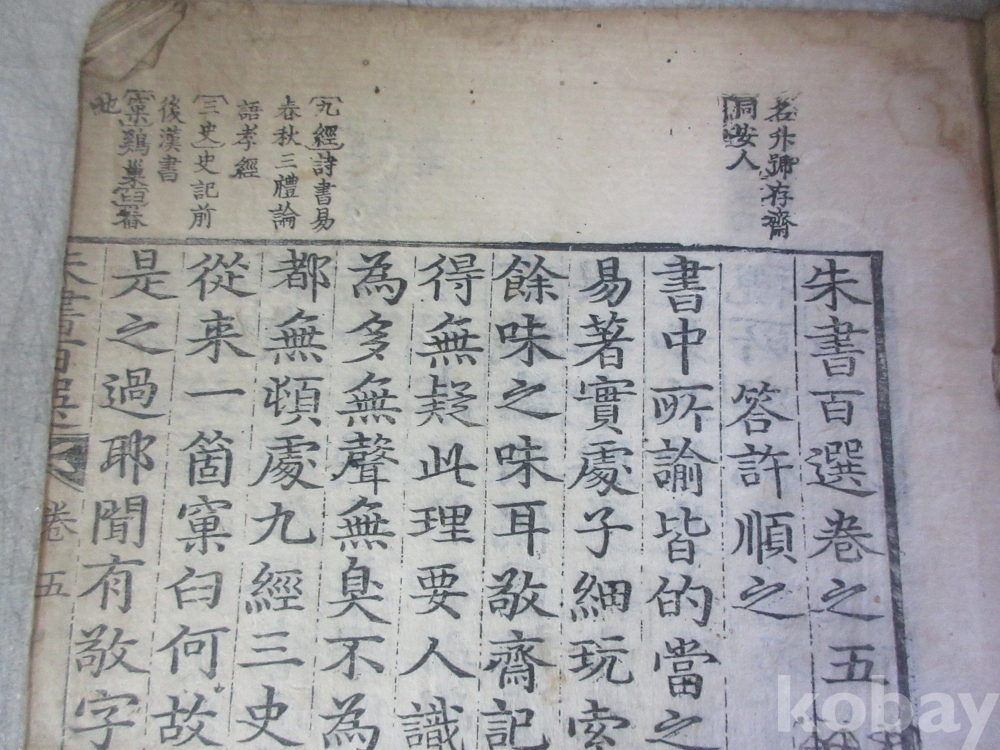 朱書百選卷之五
答許順之
書中所諭皆的當之
易著實處子細玩索
餘味之味耳敬齋記
得無疑此理要人識
為多無聲無臭不為
都無頓處九經三史
從来一箇窠臼何故
是之過耶聞有敬字
朱書百選
卷五
名升號存齋
同安人
九經詩書易
春秋三禮論
語孝經
三史史記前
後漢書
窠鷄巢臼舂
也
kobay